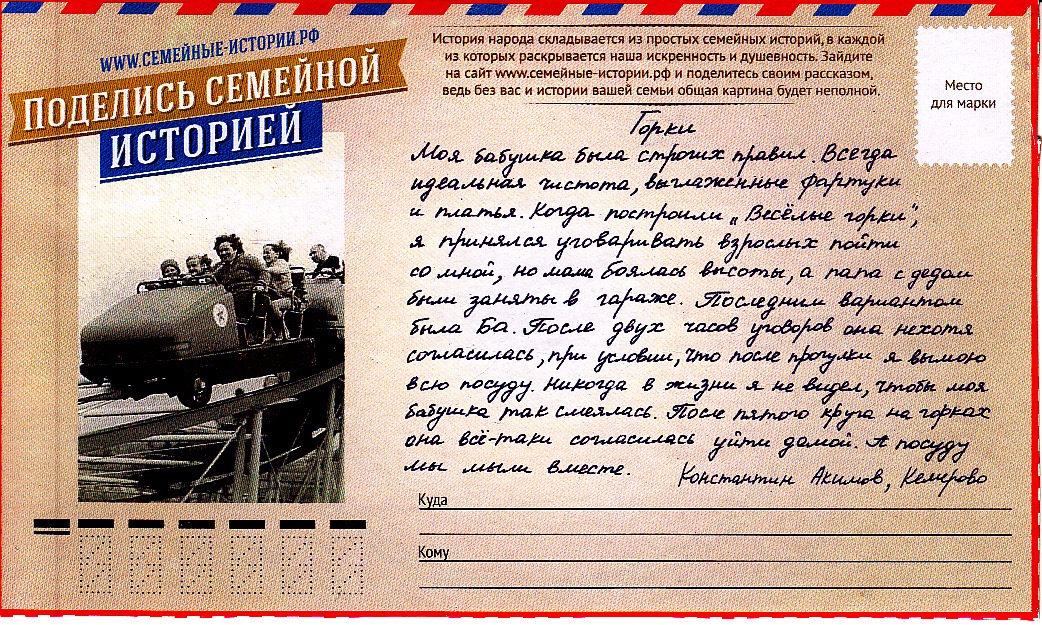 WWW.СЕМЕЙНЫЕ-ИСТОРИИ.РФ
ПОДЕЛИСЬ СЕМЕЙНОЙ
ИСТОРИЕЙ
История народа складывается из простых семейных историй, в каждой
из которых раскрывается наша искренность и душевность. Зайдите
на сайт www.семейные-истории.рф и поделитесь своим рассказом,
ведь без вас и истории вашей семьи общая картина будет неполной.
Место
для марки
Горки
Моя бабушка была строгих правил. Всегда
идеальная чистота, выглаженные фартуки
и платья. Когда построили „Весёлые горки",
я принялся уговаривать взрослых пойти
со мной, но мама боялась высоты, а папа с дедом
были заняты в гараже. Последним вариантом
была Ба. После двух часов уговоров она нехотя
согласилась, при условии, что после прогулки я вымою
всю посуду. Никогда в жизни я не видел, чтобы моя
бабушка так смеялась. После пятого круга на горках
она всё-таки согласилась уйти домой. А посуду
мы мыли вместе.
Константин Акимов, Кемерово
Куда
Кому